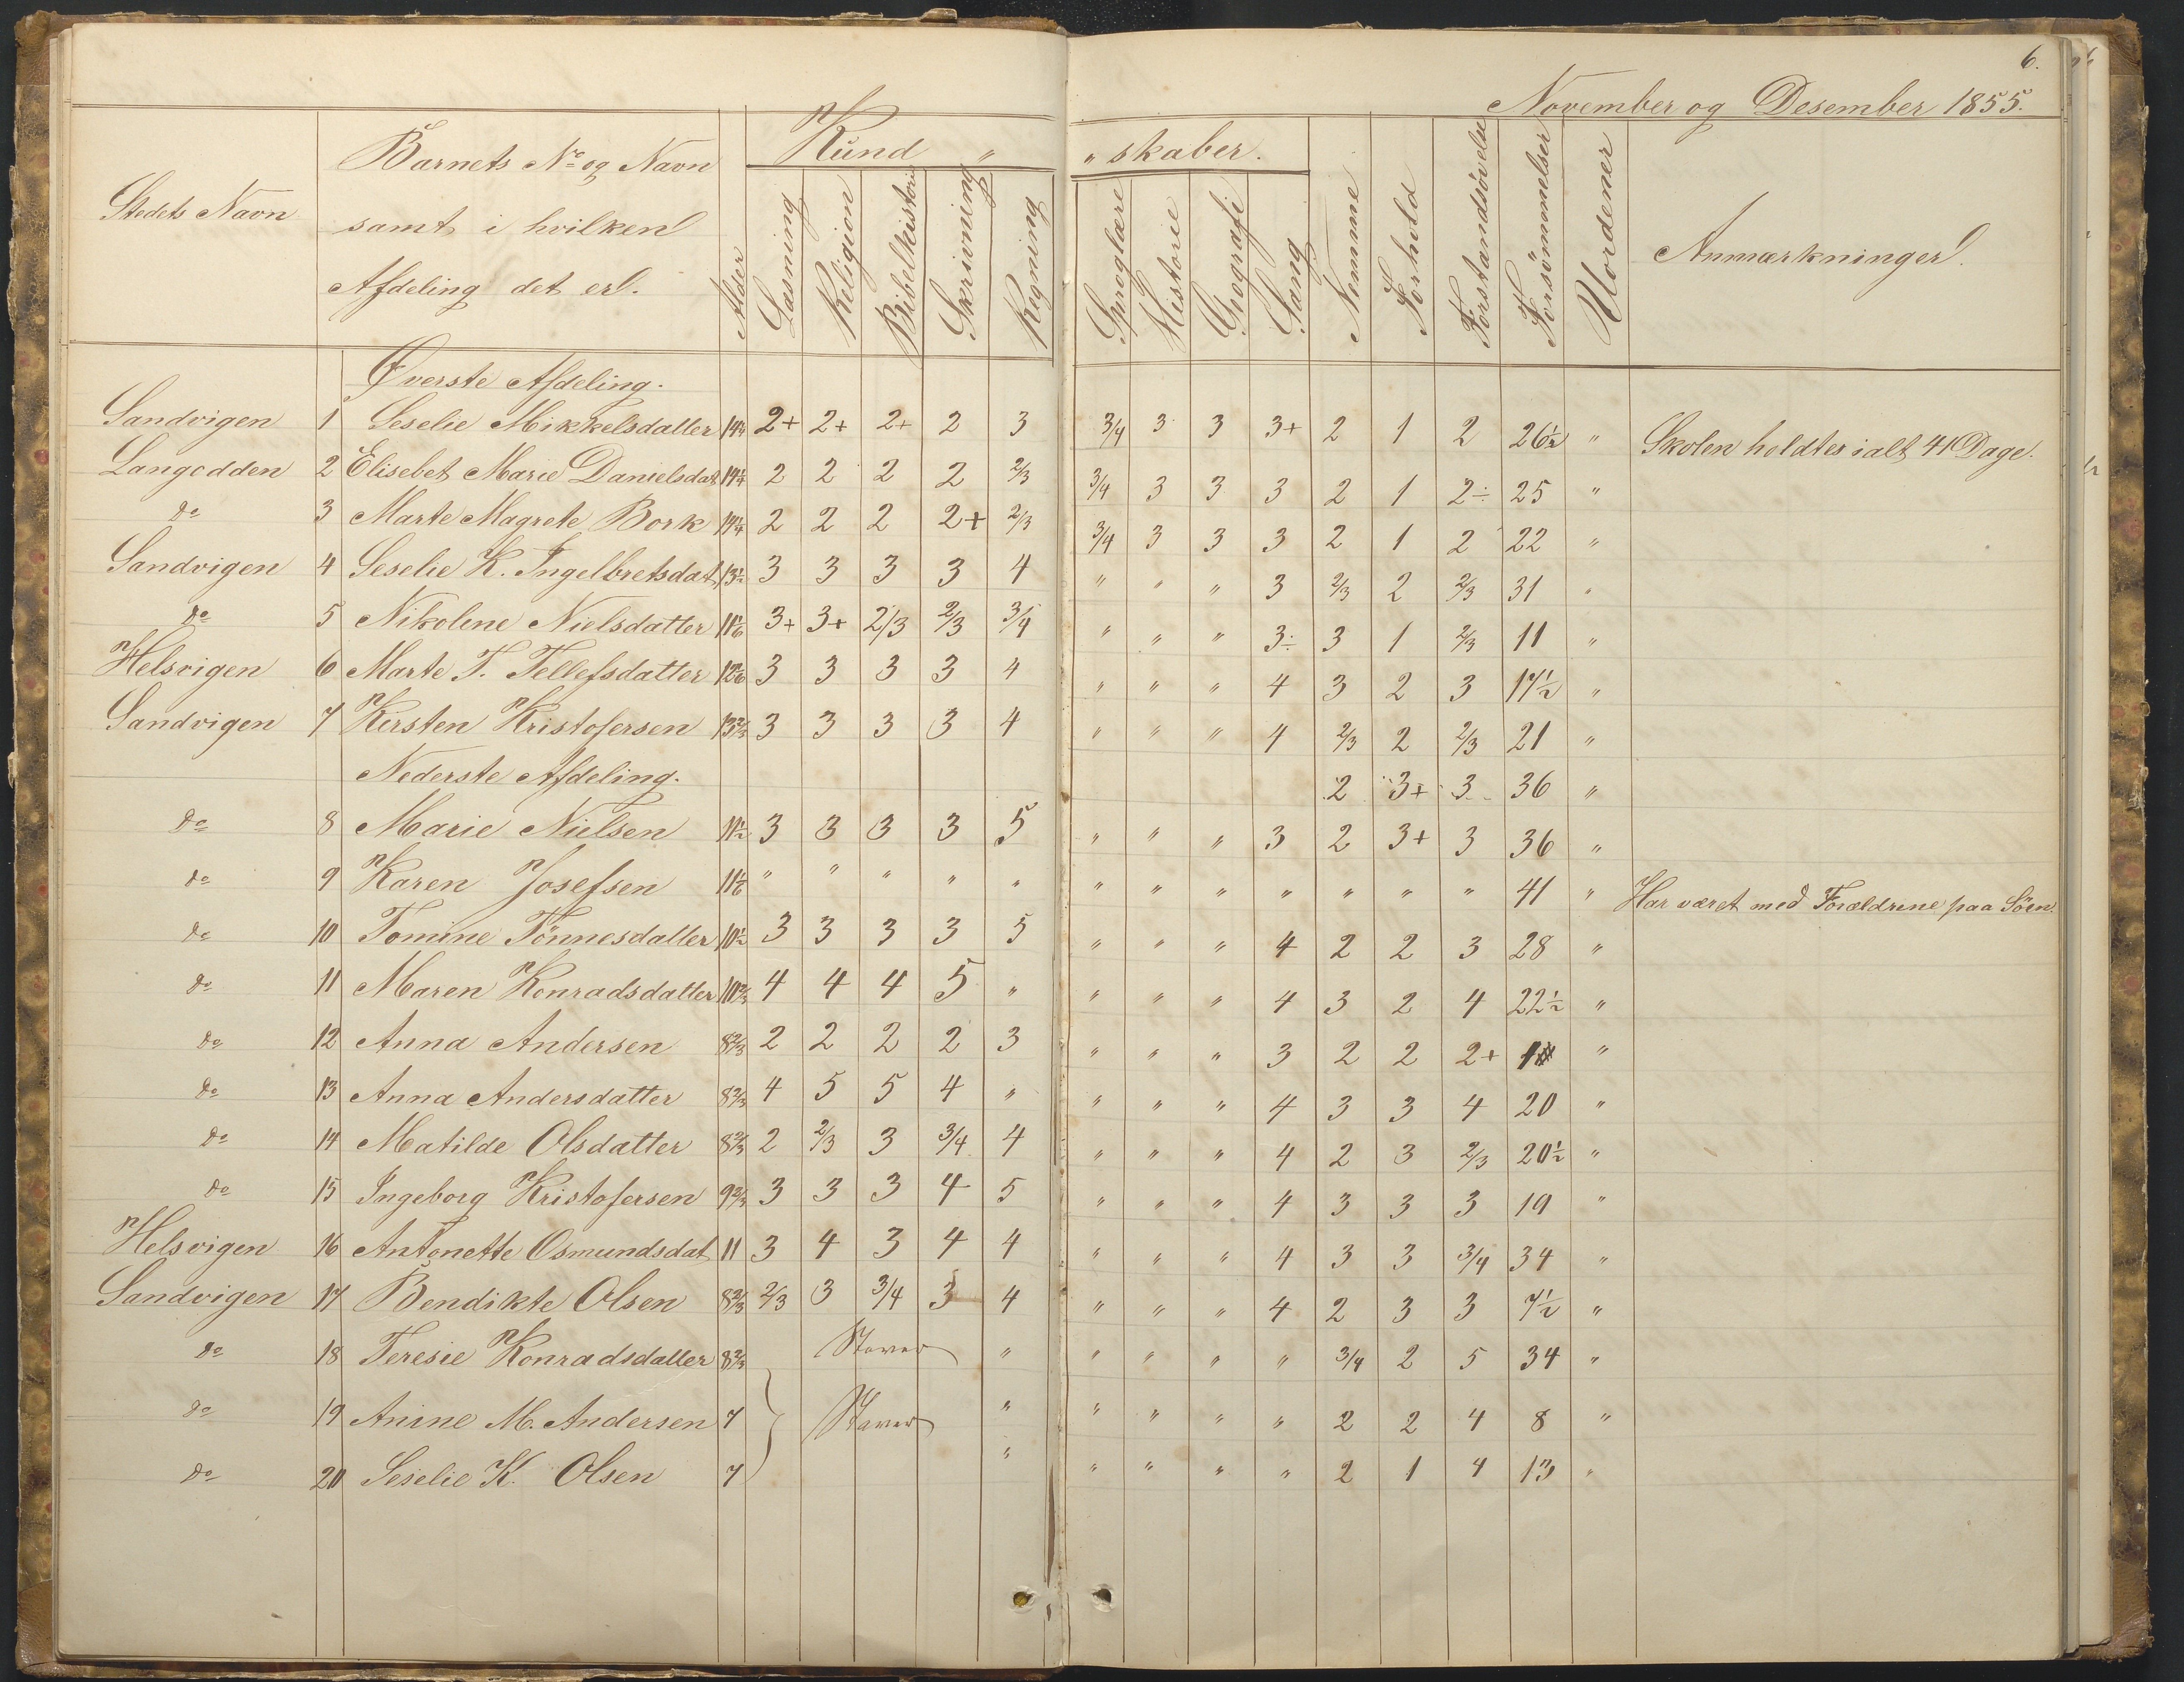 6.
November og Desember 1855.
Stedets Navn | Barnets No og Navn samt i hvilken Afdeling det er. | Alder | Kund " " skaber. | Læsning | Religion | Bibelhistorie | Skrivning | Regning | Sproglære | Historie | Geografi | Sang | Nemme | Forhold | Forstandsøvelse | Forsømmelser | Uordener | Anmærkninger.
Øverste Afdeling.
Sandvigen 1 Seselie Mikkelsdatter 14 2+ 2+ 2+ 2 3 3/4 3 3 3+ 2 1 2 26½ " Skolen holdtes ialt 41 Dage.
Langodden 2 Elisebet Marie Danielsdat 14¼ 2 2 2 2 2/3 3/4 3 3 3 2 1 2÷ 25 "
do 3 Marte Magrete Bork 14¼ 2 2 2 2+ 2/3 3/4 3 3 3 2 1 2 22 "
Sandvigen 4 Seselie K. Ingelbretsdat 13½ 3 3 3 3 4 " " " 3 2/3 2 2/3 31 "
do 5 Nikolene Nielsdatter 11 3+ 3+ 2/3 2/3 3/4 " " " 3÷ 3 1 2/3 11 "
Helsvigen 6 Marte T. Tellefsdatter 12 3 3 3 3 4 " " " 4 3 2 3 17½ "
Sandvigen 7 Kirsten Kristofersen 13⅔ 3 3 3 3 4 " " " 4 2/3 2 2/3 21 "
Nederste Afdeling. 2 3+ 3 36 "
do 8 Marie Nielsen 11½ 3 3 3 3 5 " " " 3 2 3+ 3 36 "
do 9 Karen Josefsen 11⅙ " " " " " " " " " " " " 41 " Har været med Forældrene paa Söen.
do 10 Tomine Tönnesdatter 10½ 3 3 3 3 5 " " " 4 2 2 3 28 "
do 11 Maren Konradsdatter 10⅔ 4 4 4 5 " " " " 4 3 2 4 22½ "
do 12 Anna Andersen 8⅔ 2 2 2 2 3 " " " 3 2 2 2+ 1 "
do 13 Anna Andersdatter 8⅔ 4 5 5 4 " " " " 4 3 3 4 20 "
do 14 Matilde Olsdatter 8⅔ 2 2/3 3 3/4 4 " " " 4 2 3 2/3 20½ "
do 15 Ingeborg Kristofersen 9⅔ 3 3 3 4 5 " " " 4 3 3 3 19 "
Helsvigen 16 Antonette Osmundsdat 11 3 4 3 4 4 " " " 4 3 3 3/4 34 "
Sandvigen 17 Bendikte Olsen 8⅔ 2/3 3 3/4 3 4 " " " 4 2 3 3 7½ "
do 18 Teresie Konradsdatter 8⅔ Staver " " " " " 3/4 2 5 34 "
do 19 Anine M. Andersen 7 Staver " " " " " 2 2 4 8 "
do 20 Seselie K. Olsen 7 " " " " " 2 1 4 13 "